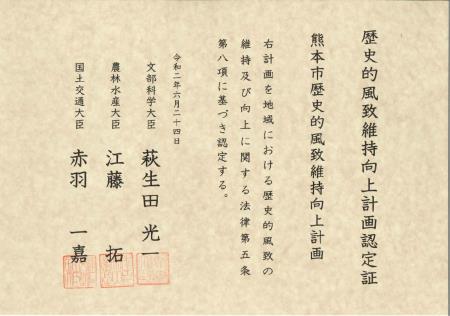 歴史的風致維持向上計画認定証
熊本市歴史的風致維持向上計画
右計画を地域における歴史的風致の
維持及び向上に関する法律第五条
第八項に基づき認定する。
令和二年六月二十四日
文部科学大臣 萩生田 光一
農林水産大臣 江藤 拓
国土交通大臣 赤羽 一嘉